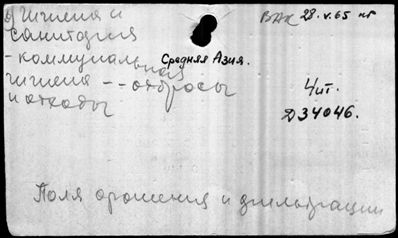 Гигиена и
санитария
- коммунальная
гигиена - - отбросы
и отходы
Средняя Азия.
28.V.65
Чит.
Д34046.
Поля орошения и фильтрации